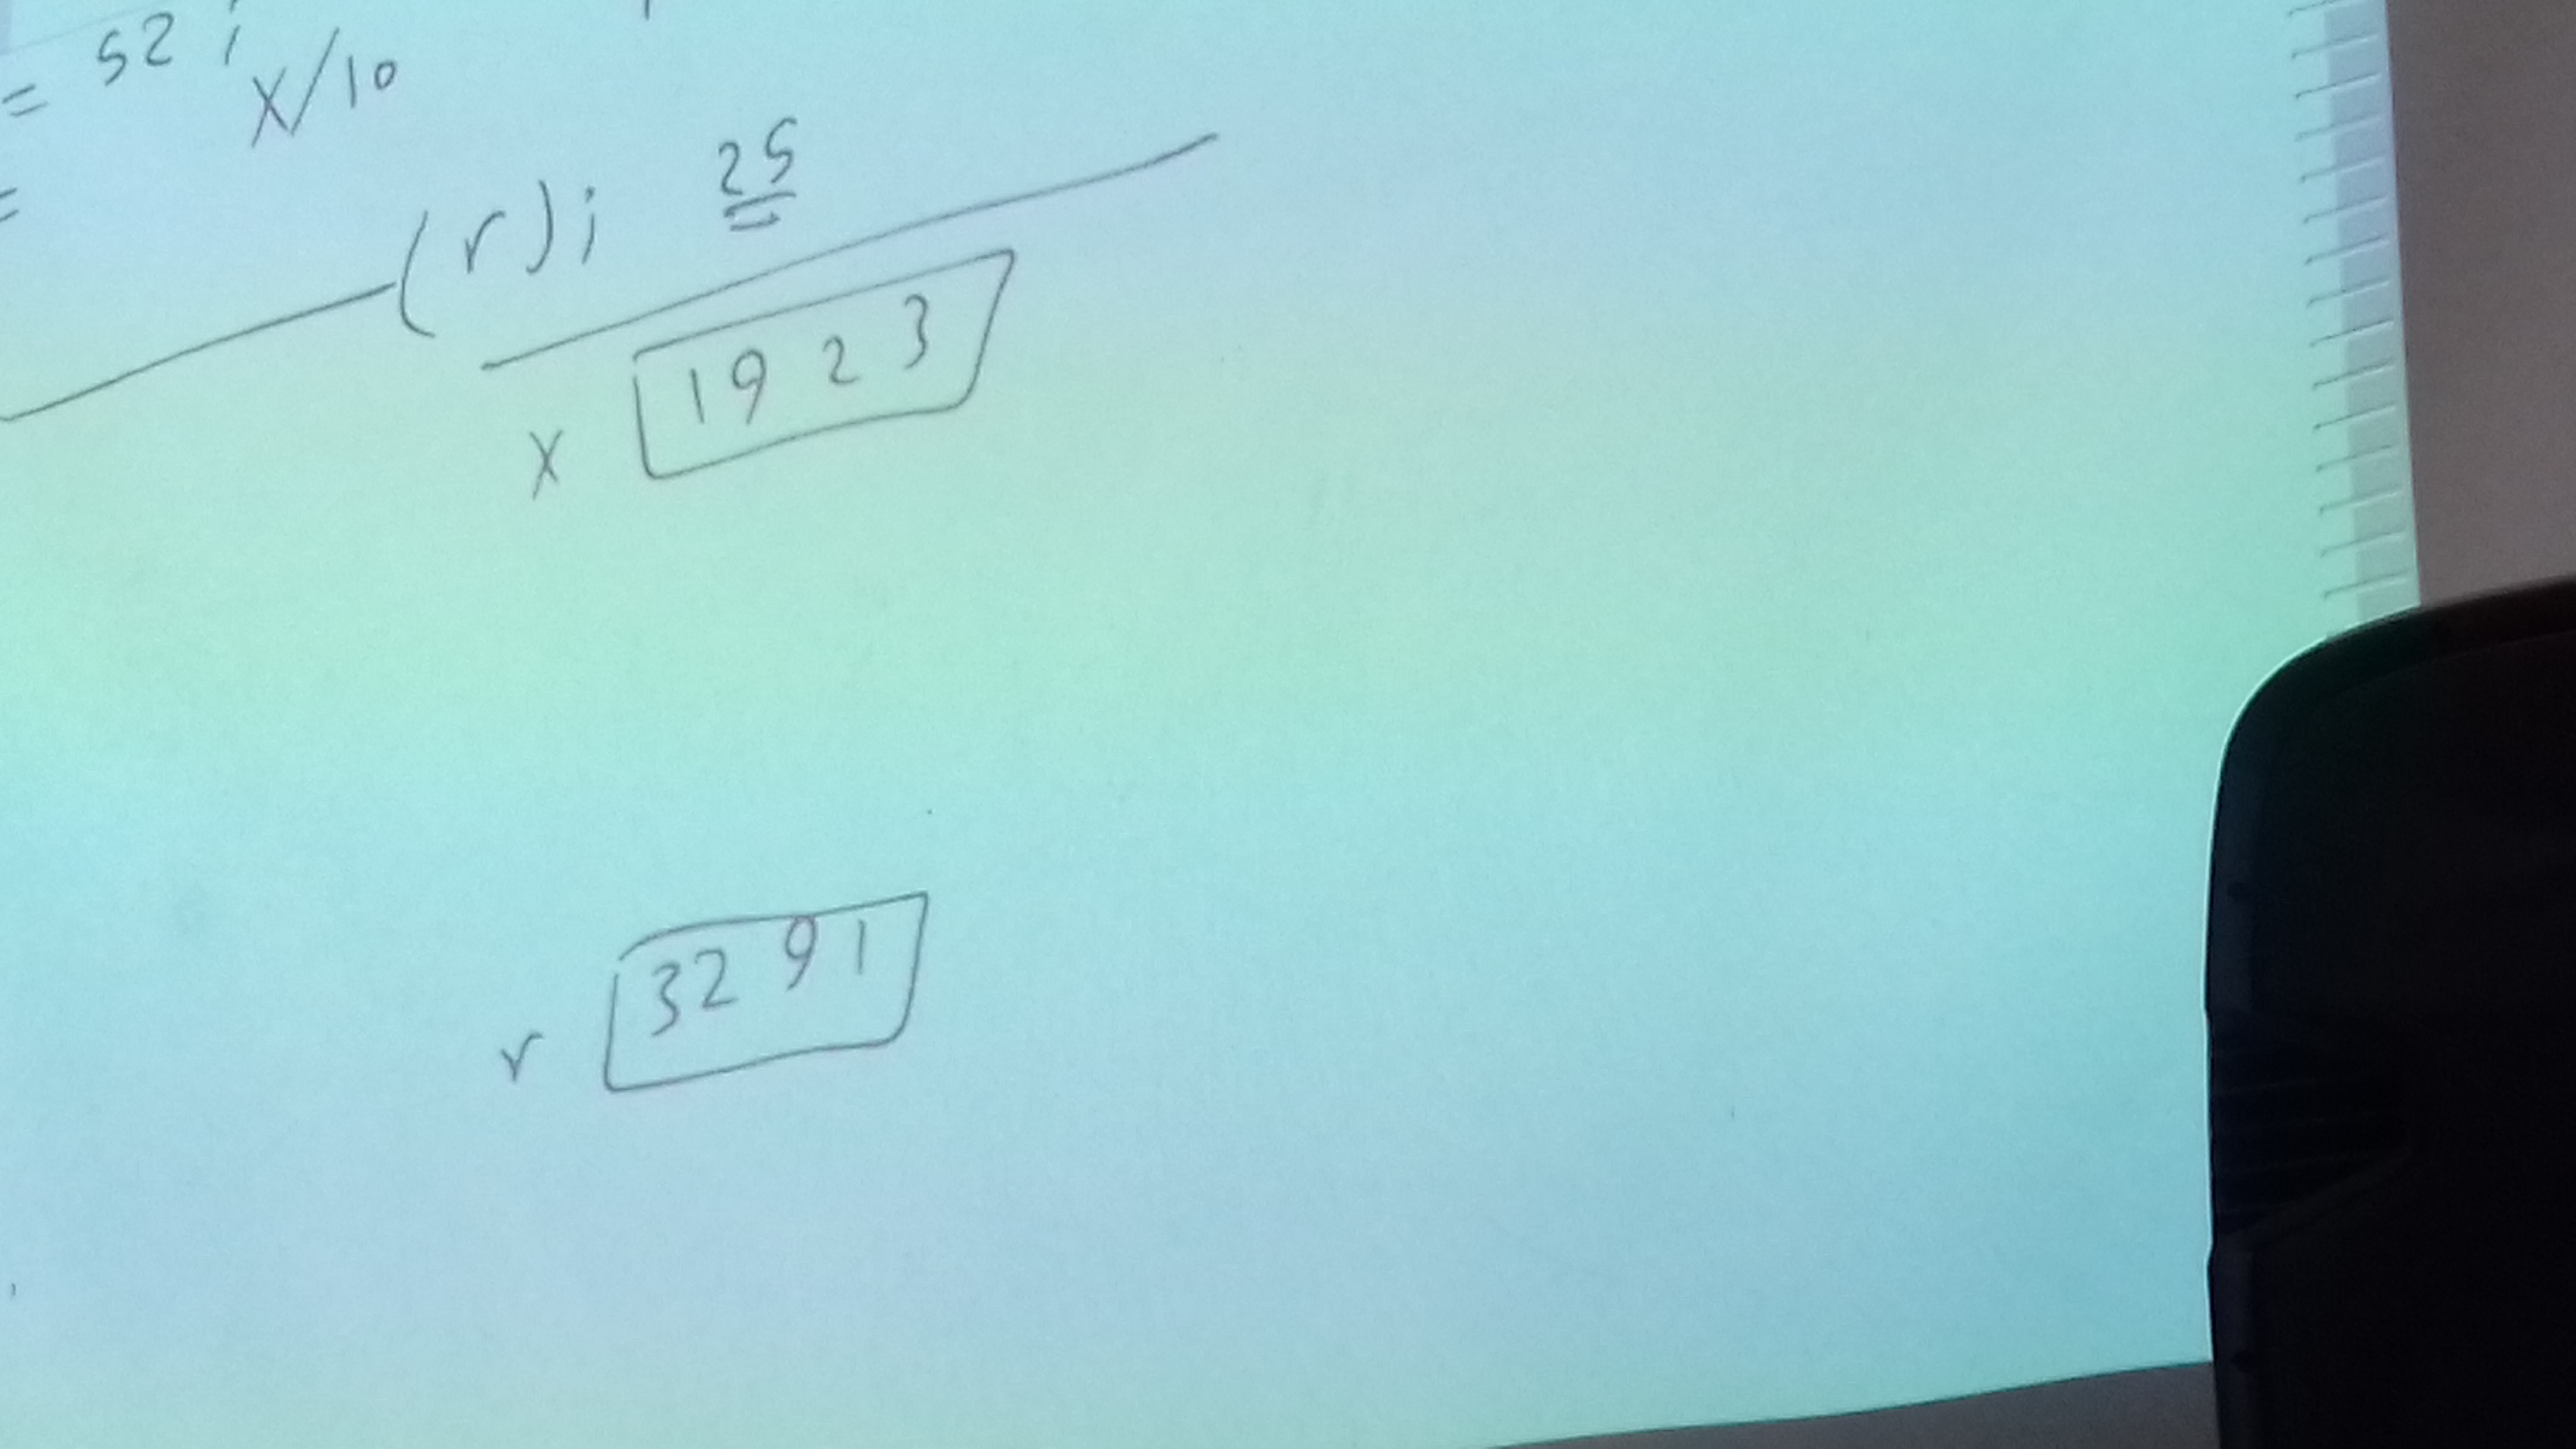 = 52 ;
X/10
=
(r); 25
X 1923
r 3291